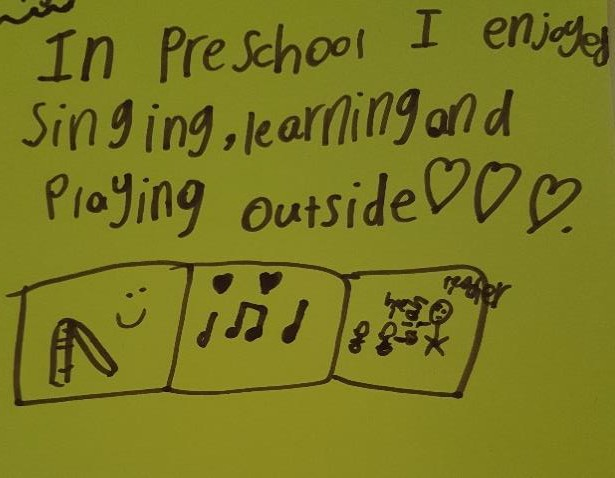 In Preschool I enjoyed
singing, learning and
Playing outside♡♡♡.